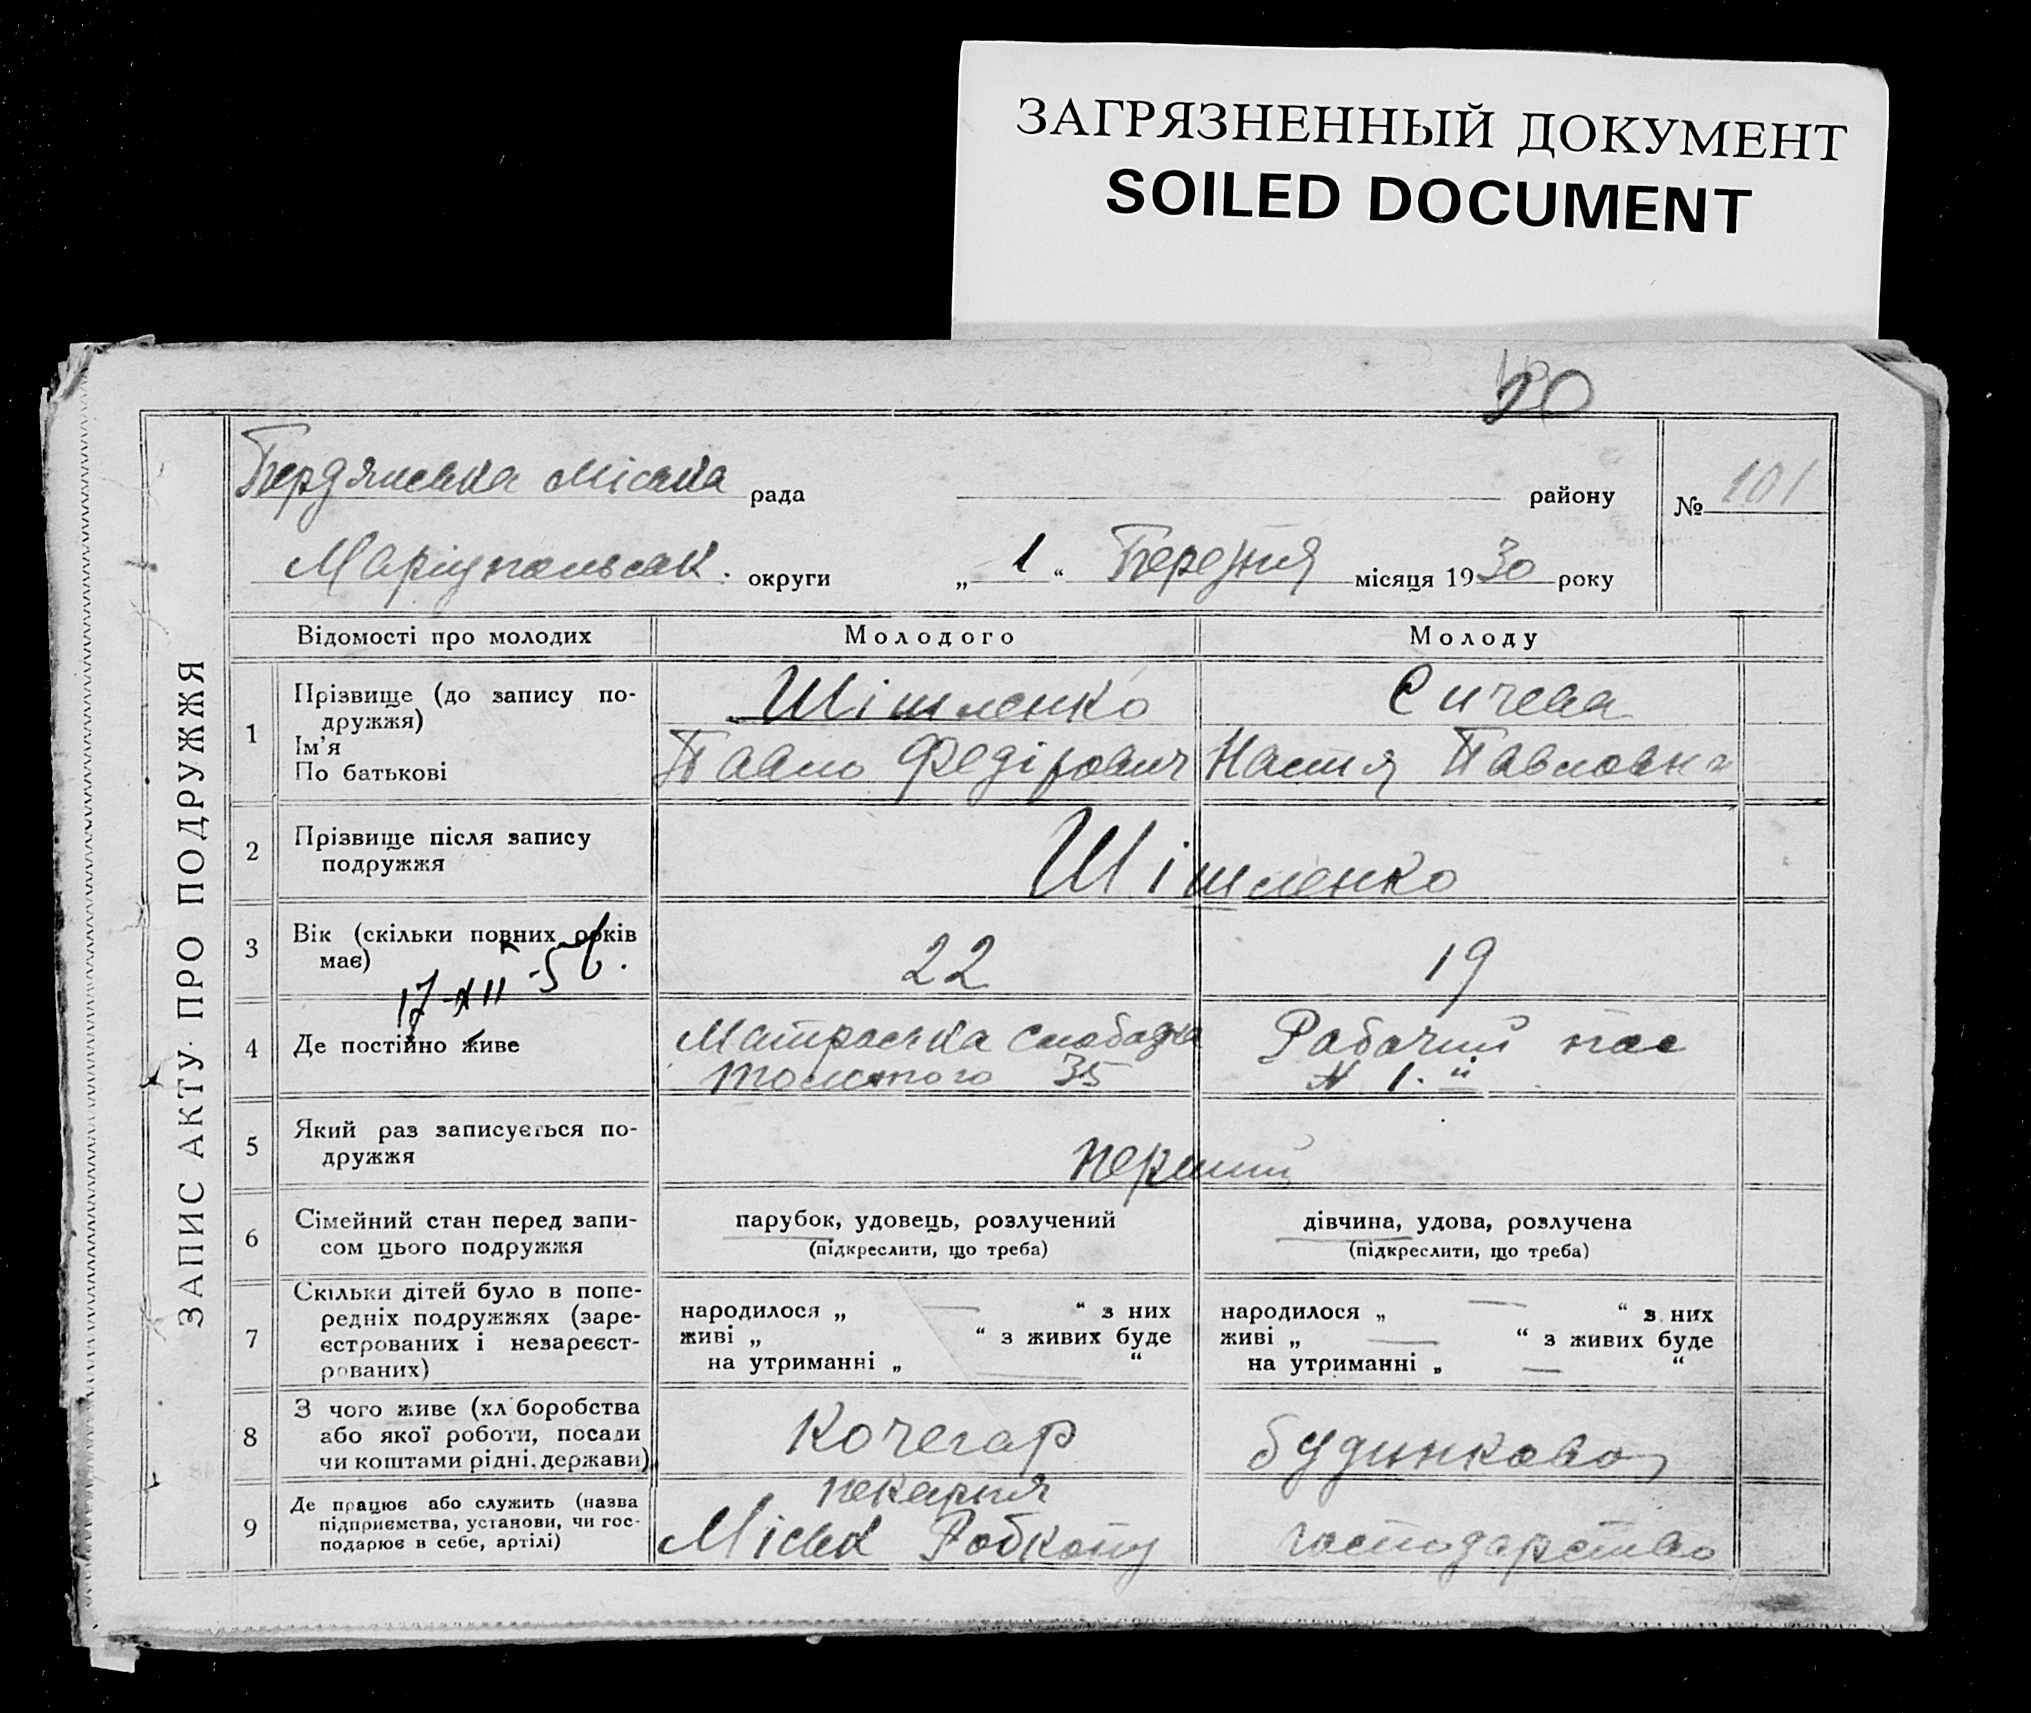 ЗАГРЯЗНЕННЫЙ ДОКУМЕНТ
SOILED DOCUMENT
ЗАПИС АКТУ ПРО ПОДРУЖЖЯ
Бердянська міська рада району
№ 101
Маріупольськ. округи „ 1 “ Березня місяця 1930 року
Відомості про молодих Молодого Молоду
1 Прізвище (до запису по-
дружжя)
Ім’я
По батькові
Шішленко
Павло Федірович
Сичева
Настя Павловна
2 Прізвище після запису
подружжя
Шішленко
3 Вік (скільки повних років
має)
22 19
17-XII-56.
4 Де постійно живе
Матроська Слобадка
Толстого 35
Рабочий пос
N 1.
5 Який раз записується по-
дружжя
перший
6 Сімейний стан перед запи-
сом цього подружжя
парубок, удовець, розлучений
(підкреслити, що треба)
дівчина, удова, розлучена
(підкреслити, що треба)
7 Скільки дітей було в попе-
редніх подружжях (заре-
єстрованих і незареєст-
рованих)
народилося „ — “ з них
живі „ “ з живих буде
на утриманні „ — “
народилося „ — “ з них
живі „ — “ з живих буде
на утриманні „ — “
8 З чого живе (хл боробства
або якої роботи, посади
чи коштами рідні, держави)
Кочегар
будинкове
9 Де працює або служить (назва
підприємства, установи, чи гос-
подарює в себе, артілі)
пекарня
Міськ Робкопу
господарство